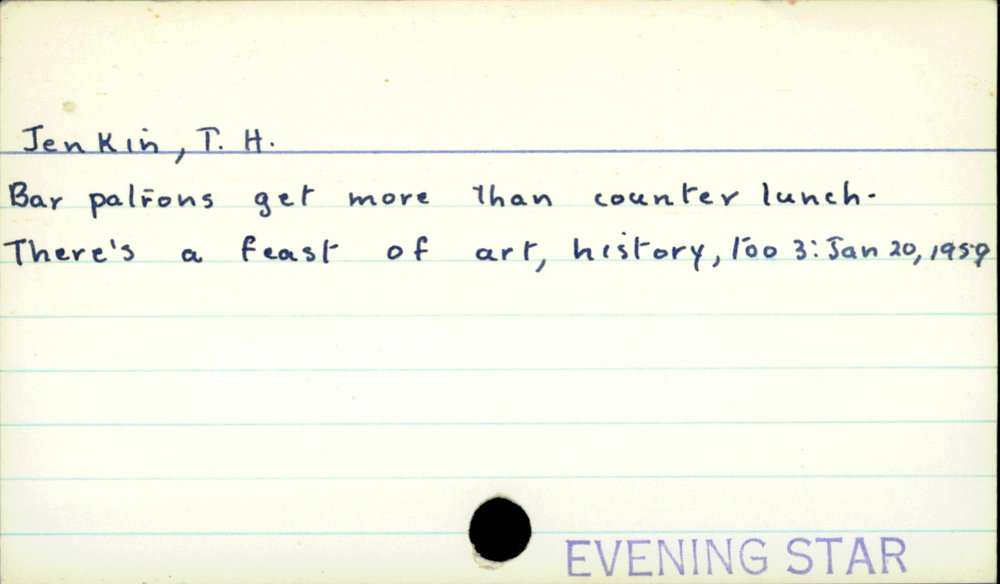 Jenkin, T. H.
Bar patrons get more than counter lunch.
There's a feast of art, history, too 3: Jan 20, 1959
EVENING STAR